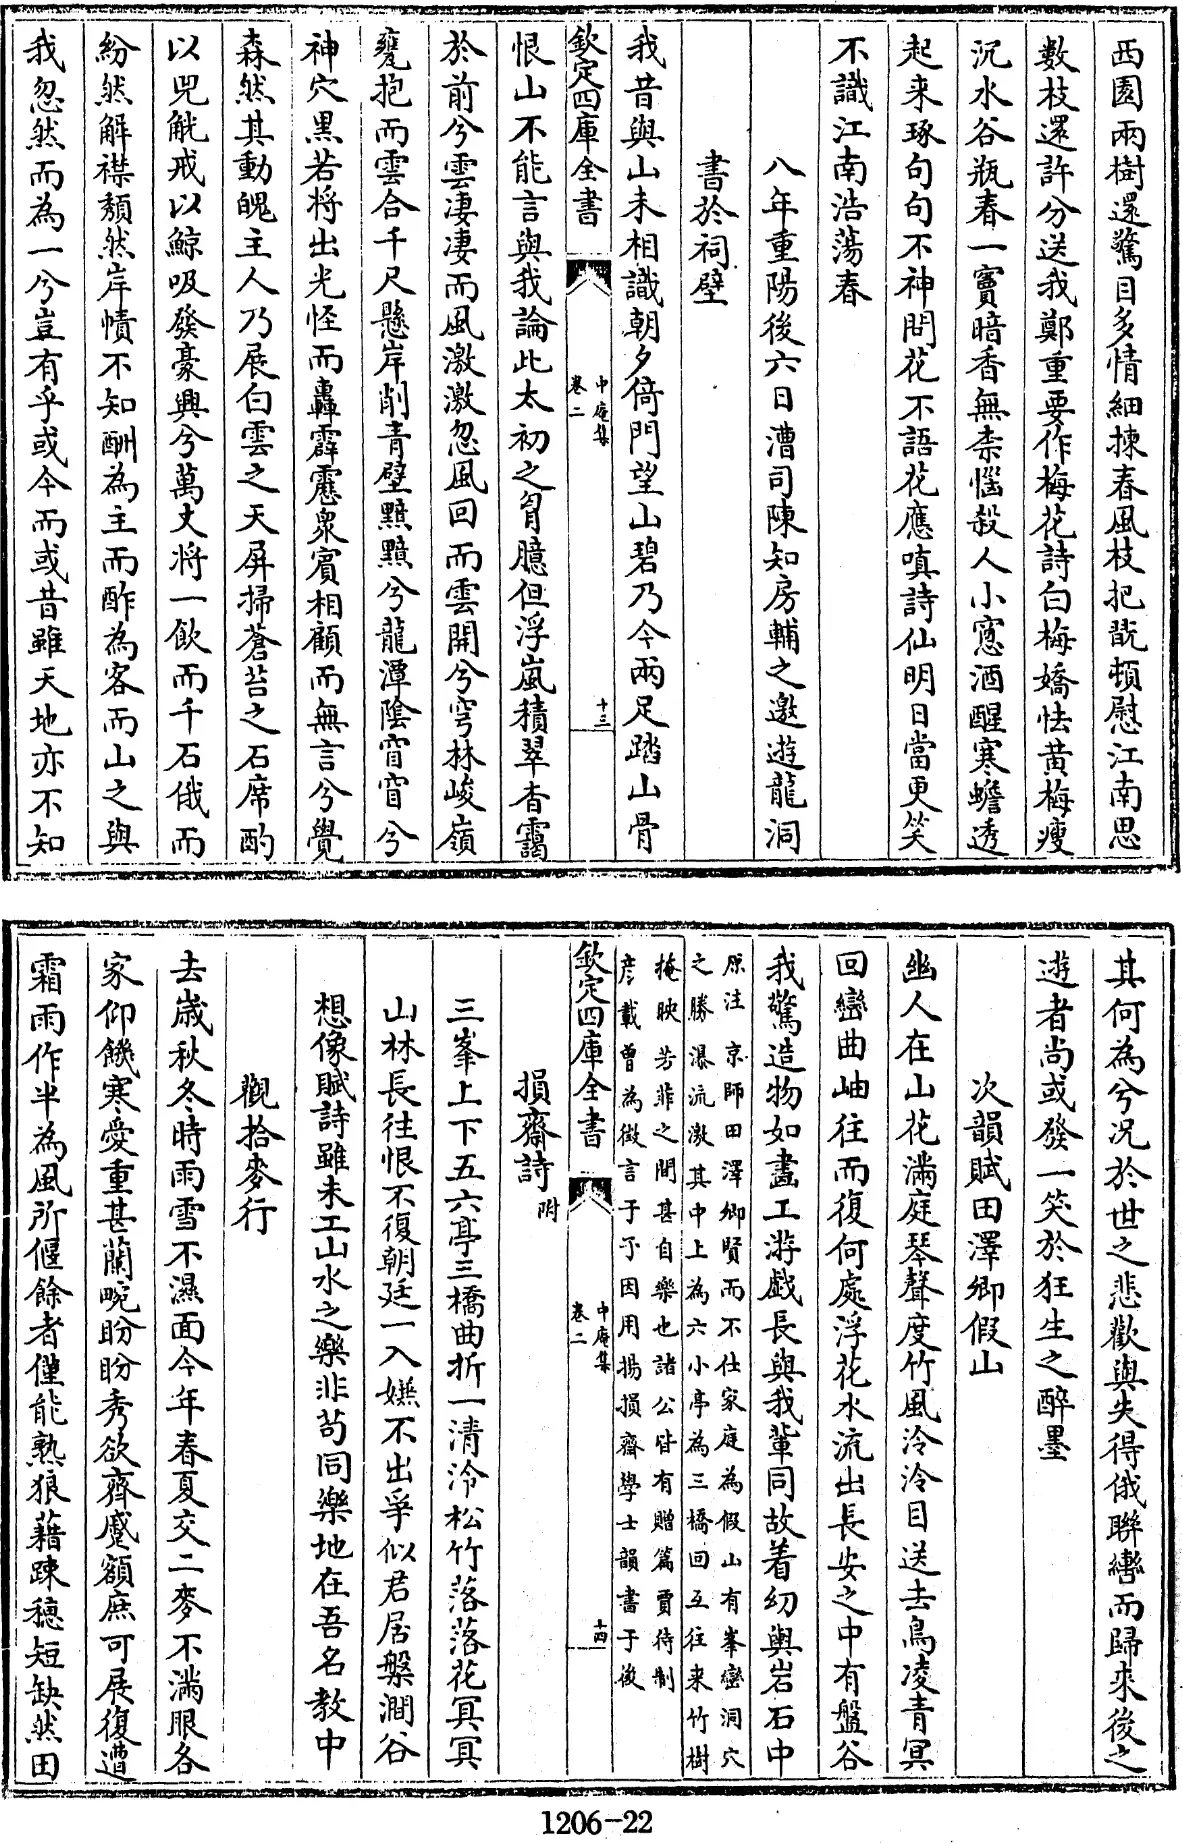 西園兩樹還驚目多情細揀春風枝把翫頓慰江南思
數枝還許分送我鄭重要作梅花詩白梅嬌怯黄梅瘦
沉水谷瓶春一竇暗香無柰惱殺人小窓酒醒寒蟾透
起来琢句句不神問花不語花應嗔詩仙明日當更笑
不識江南浩蕩春
八年重陽後六日漕司陳知房輔之邀遊龍洞
書於祠壁
我昔與山未相識朝夕倚門望山碧乃今兩足踏山骨
欽定四庫全書
中庵集
卷二
十三
恨山不能言與我論此太初之胷臆但浮嵐積翠杳靄
於前兮雲凄凄而風激激忽風回而雲開兮穹林峻嶺
甕抱而雲合千尺懸岸削青壁黯黯兮龍潭陰窅窅兮
神穴黒若將出光怪而轟霹靂衆賓相顧而無言兮覺
森然其動魄主人乃展白雲之天屏掃蒼苔之石席酌
以兕觥戒以鯨吸發豪興兮萬丈將一飲而千石俄而
紛然解襟頽然岸幘不知酬為主而酢為客而山之與
我忽然而為一兮豈有乎或今而或昔雖天地亦不知
其何為兮况於世之悲歡與失得俄聯轡而歸來後之
遊者尚或發一笑於狂生之醉墨
次韻賦田澤卿假山
幽人在山花滿庭琴聲度竹風泠泠目送去鳥凌青冥
回巒曲岫往而復何處浮花水流出長安之中有盤谷
我驚造物如畫工游戲長與我軰同故着幻與岩石中
原注 京師田澤卿賢而不仕家庭為假山有峯巒洞穴
之勝瀑流激其中上為六小亭為三橋回互往来竹樹
掩映芳菲之間甚自樂也諸公皆有贈篇賈待制
彦載曽為徴言于予因用揚損齋學士韻書于後
欽定四庫全書
中庵集
卷二
十四
損齋詩附
三峯上下五六亭三橋曲折一清泠松竹落落花冥冥
山林長往恨不復朝廷一入嫌不出爭似君居槃澗谷
想像賦詩雖未工山水之樂非苟同樂地在吾名教中
觀拾麥行
去歳秋冬時雨雪不濕面今年春夏交二麥不滿眼各
家仰饑寒愛重甚蘭畹盼盼秀欲齊蹙額庶可展復遭
霜雨作半為風所偃餘者僅能熟狼藉踈穗短缺然田
1206-22